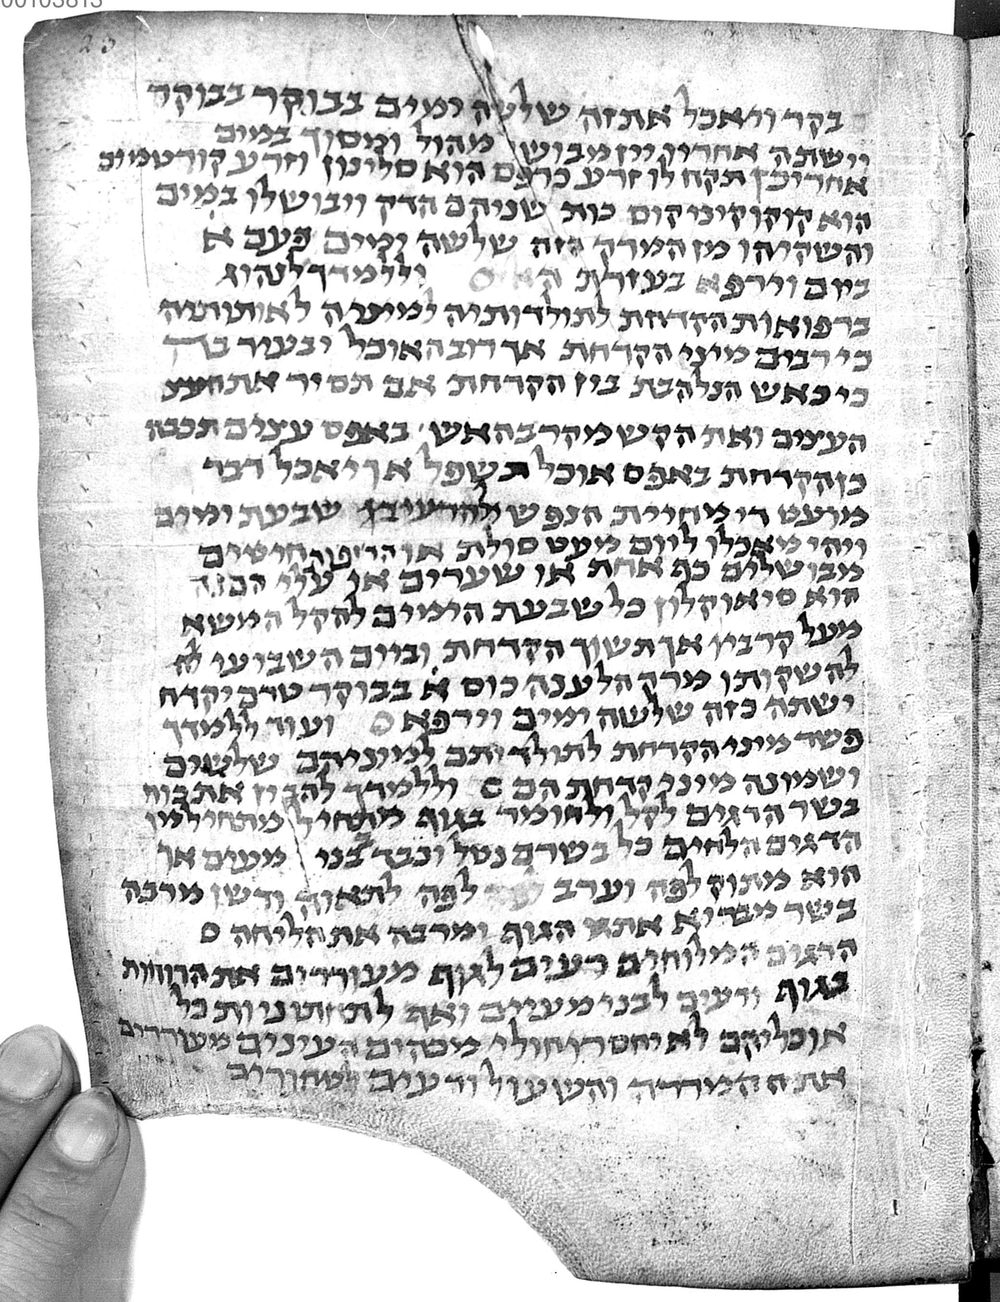 00103813
בקר ויאכל את זה שלשה ימים בבוקר בבוקר
וישתה אחריו יין מבושן מהול ומסוך במים
אחרי כן תקח לו זרע כרפס הוא סלינון וזרע קורטמים
הוא קוקו קיניקוס כות שניהם הדק ויבושלו במים
והשקיהו מן המרק הזה שלשה ימים פעם א
ביום וירפא בעזרת וללמדך לנהוג
ברפואות הקדחת לתולדותיה למיניה לאותותיה
כי רבים מיני הקדחת אך רוב האוכל יבעיר
כי כאש הנלהבת בין הקדחת אם תסיר את
העצים ואת הקש מקרב האש באפס עצים תכבה
כן הקדחת באפס אוכל תשפל אך יאכל דבר
מועט די מחיית הנפש שבעת ימים
ויהי מאכלו ליום מעט סולת או חיטים
מבושלים כף אחת או שערים או עלי
הוא סיאוקלון כל שבעת הימים להקל המשא
מעל קרביו אך תשוך הקדחת וביום השביעי
להשקותו מרק הלענה כוס א בבוקר טרם יקדח
ישתה כזה שלשה ימים וירפא ועוד ללמדך
פשר מיני הקדחת לתולדותם למיניהם שלשים
ושמונה מיני קדחת הם וללמדך להבין את כוח
בשר הדגים לקל ולחומר בגוף מתחיל
הדגים הלחים כל בשרם נטל וכבד בבני מעים אך
הוא מתוק לפה וערב לפה לתאוה ודשן מרבה
בשר מבריא את הגוף ומרבה את הליחה
הדגים המלוחים רעים לגוף מעוררים את הרוחות
בגוף ורעים לבני מעיים ואף לתחתוניות כל
אוכליהם לא יחסרו חולי מכהים העינים מעוררים
את המררה והשעול ורעים לטחורים